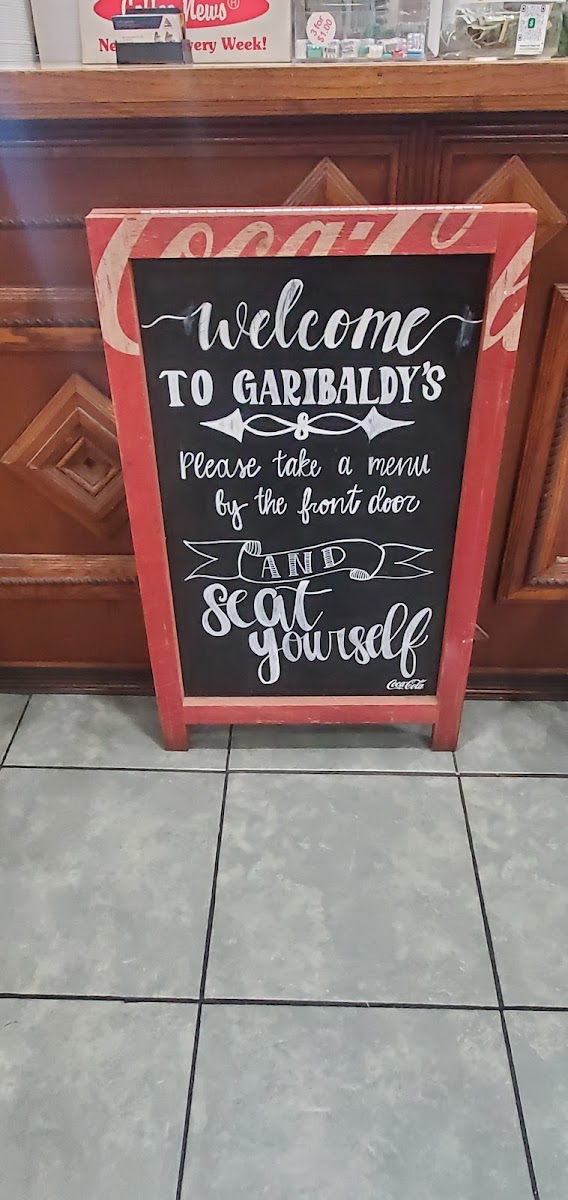 Coffee News®
Ne very Week!
3 for
$1.00
Coca-Co
welcome
TO GARIBALDY'S
Please take a menu
by the front door
AND
seat
yourself
Coca-Cola